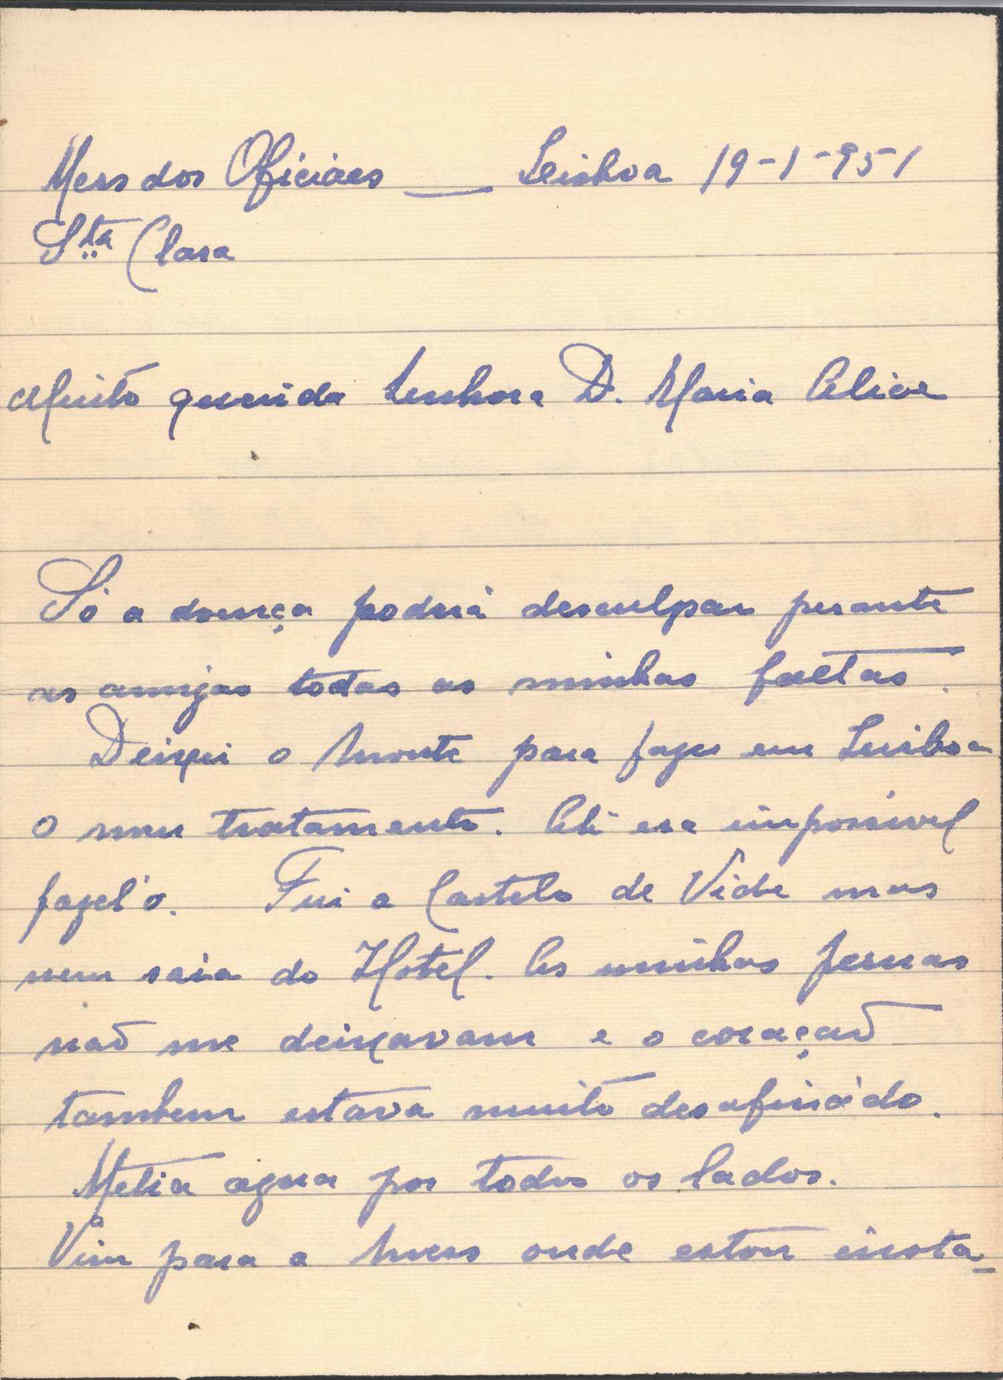 Mess dos Oficiaes — Lisboa 19-1-951
Sta Clara
Muito querida Senhora D. Maria Alice
Só a doença poderá desculpar perante
as amigas todas as minhas faltas.
Deixei o Monte para fazer em Lisboa
o meu tratamento. Ali era impossivel
fazel'o. Fui a Castelo de Vide mas
nem saia do Hotel. As minhas pernas
não me deixavam e o coração
tambem estava muito desafinado.
Metia agua por todos os lados.
Vim para a Mess onde estou insta-